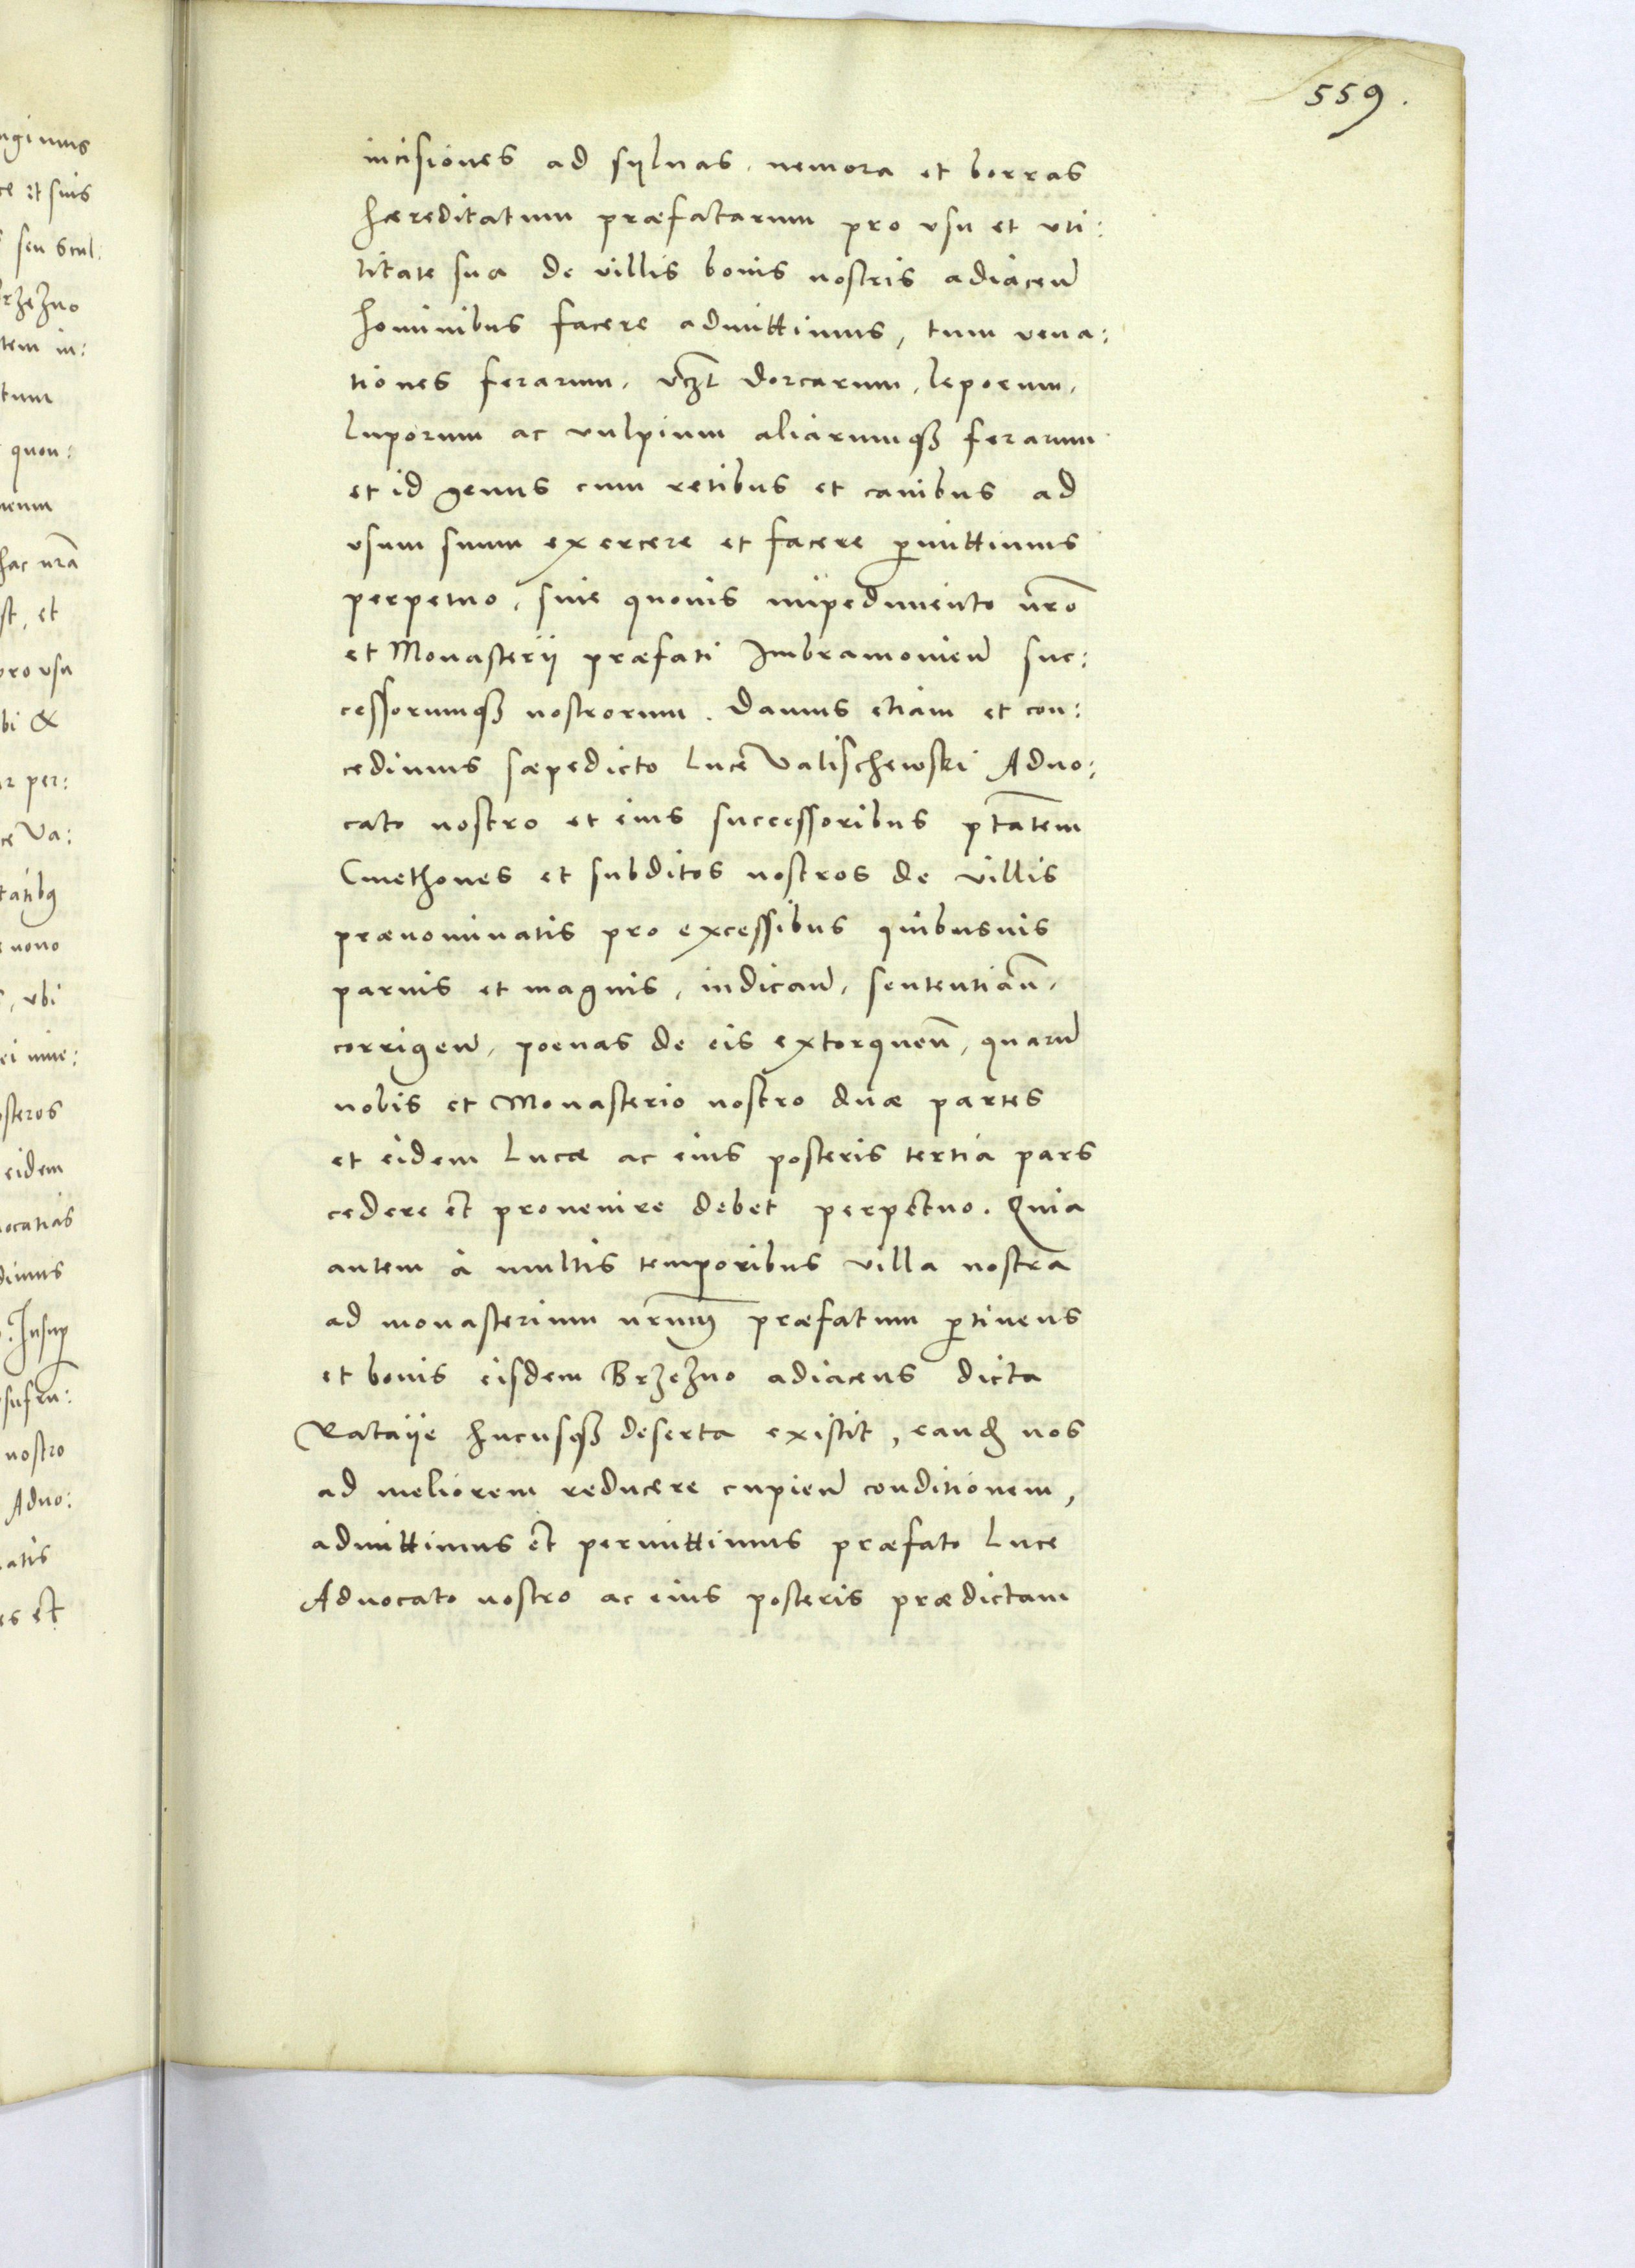 559.
incisiones ad sylvas, nemora et borras
hæreditatum præfatarum pro vsu et vti:
litate sua de villis bonis nostris adiaceñ
hominibus facere admittimus, tum vena:
tiones ferarum, vꝫt dorcarum, leporum,
luporum ac vulpium aliarumqꝫ ferarum
et id genus cum retibus et canibus ad
vsum suum exercere et facere p̱mittimus
perpetuo, sine quouis impedimento nr̃o
et Monasterÿ præfati Imbramonieñ suc:
cessorumqꝫ nostrorum. Damus etiam et con:
cedimus sæpedicto Lucę Valischewski Aduo:
cato nostro et eius successoribus ptãtem
Cmethones et subditos nostros de villis
prænominatis pro excessibus quibusuis
paruis et magnis, iudicañ, sententiañ,
corrigeñ, poenas de eis extorqueñ, quarũ
nobis et Monasterio nostro duæ partes
et eidem Lucæ ac eius posteris tertia pars
cedere et prouenire debet perpetuo. Quia
autem à multis temporibus villa nostra
ad monasterium nr̃um præfatum p̱tinens
et bonis eisdem Brzezno adiacens dicta
Rataÿe hucusqꝫ deserta existit, eandꝫ nos
ad meliorem reducere cupieñ conditionem,
admittimus et permittimus præfato Lucę
Aduocato nostro ac eius posteris prædictam